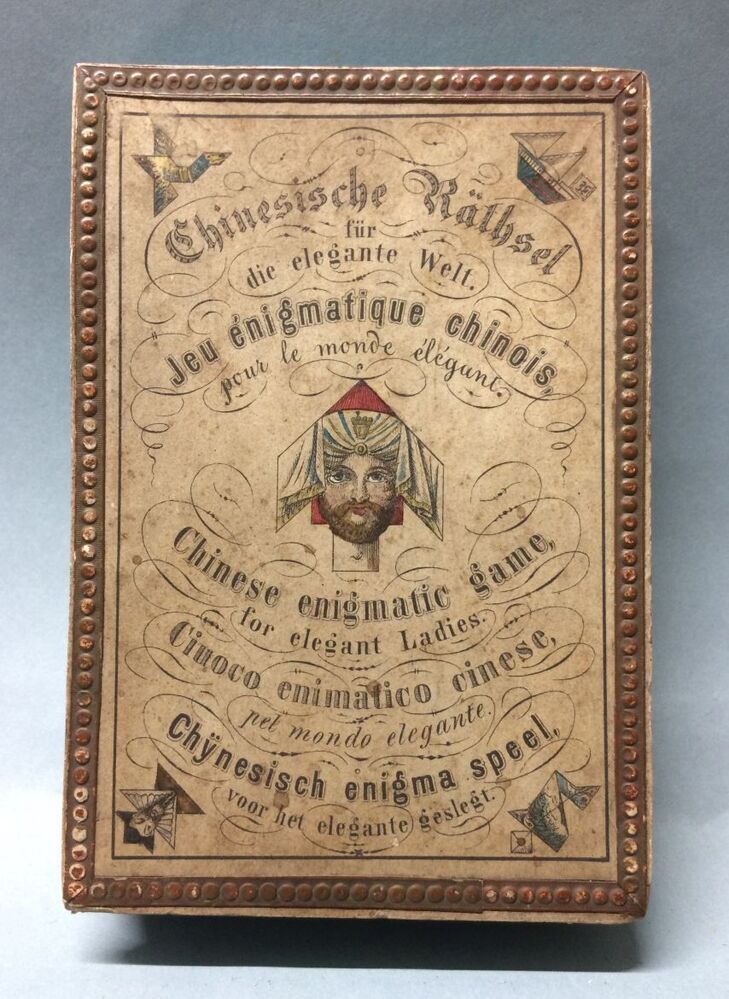 Chinesische Räthsel
für
die elegante Welt.
Jeu énigmatique chinois,
pour le monde élégant.
Chinese enigmatic game,
for elegant Ladies.
Ciuoco enimatico cinese,
pel mondo elegante.
Chÿnesisch enigma speel,
voor het elegante geslegt.